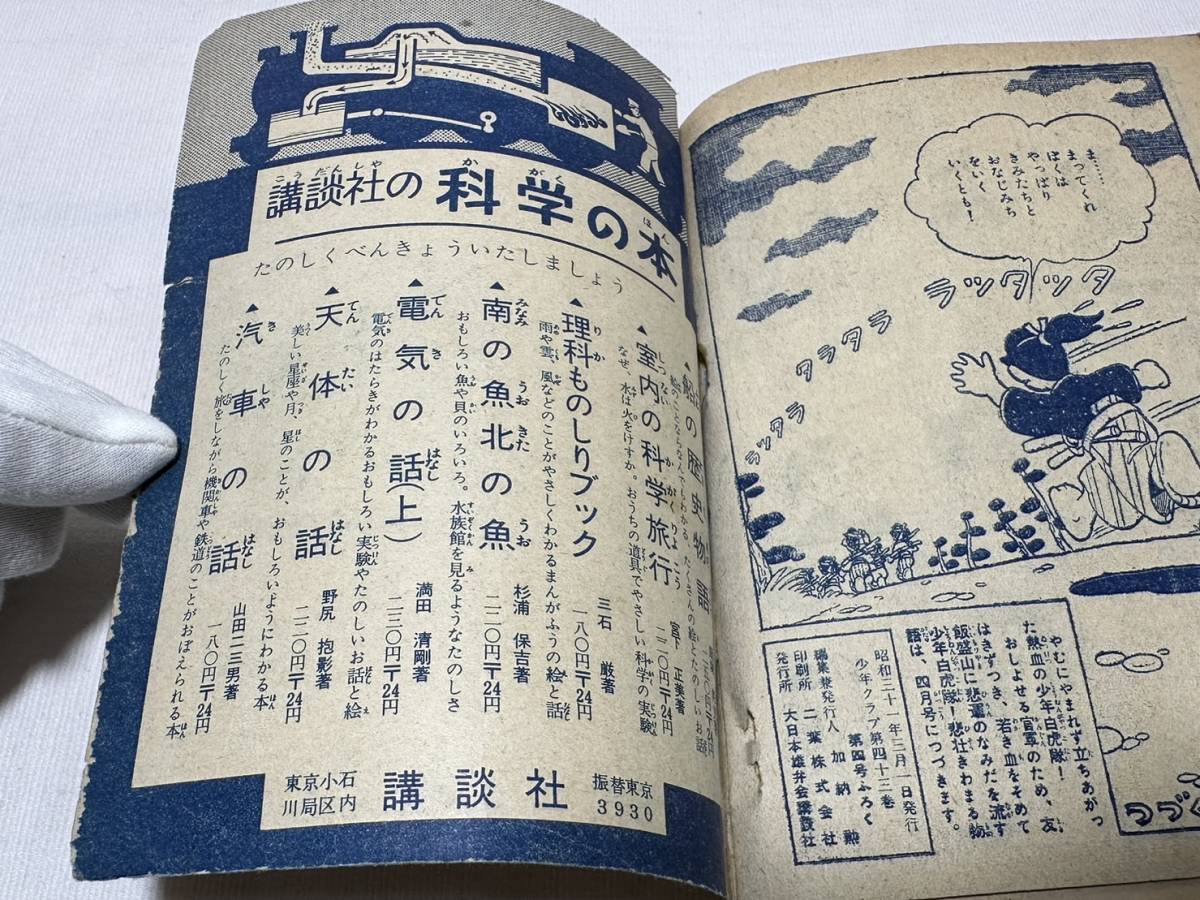 講談社の科学の本
たのしくべんきょういたしましょう
の歴史物語
室内の科学旅行
宮下 正美著
なぜ、水は火をけすか。おうちの道具でやさしい科学の実験
二二〇円〒24円
理科ものしりブック
三石 巌著
雨や雲、風などのことがやさしくわかるまんがふうの絵と話
一八〇円〒24円
南の魚北の魚
杉浦 保吉著
おもしろい魚や貝のいろいろ。水族館を見るようなたのしさ
二二〇円〒24円
電気の話(上)
満田 清剛著
電気のはたらきがわかるおもしろい実験やたのしいお話と絵
二三〇円〒24円
天体の話
野尻 抱影著
美しい星座や月、星のことが、おもしろいようにわかる本
二二〇円〒24円
汽車の話
山田二三男著
たのしく旅をしながら機関車や鉄道のことがおぼえられる本
一八〇円〒24円
東京小石
川局区内
講談社
振替東京
3930
ま……
まってくれ
ぼくは
やっぱり
きみたちと
おなじみち
をいく
いくとも!
ラッタッタ
ラッタラ タラタラ
やむにやまれず立ちあがっ
た熱血の少年白虎隊!
おしよせる官軍のため、友
はきずつき、若き血をそめて
飯盛山に悲運のなみだを流す
少年白虎隊!悲壮きわまる物
語は、四月号につづきます。
昭和三十一年三月一日発行
少年クラブ第四十三巻
第四号ふろく
編集兼発行人 加納 勲
印刷所 二葉株式会社
発行所 大日本雄弁会講談社
つづく